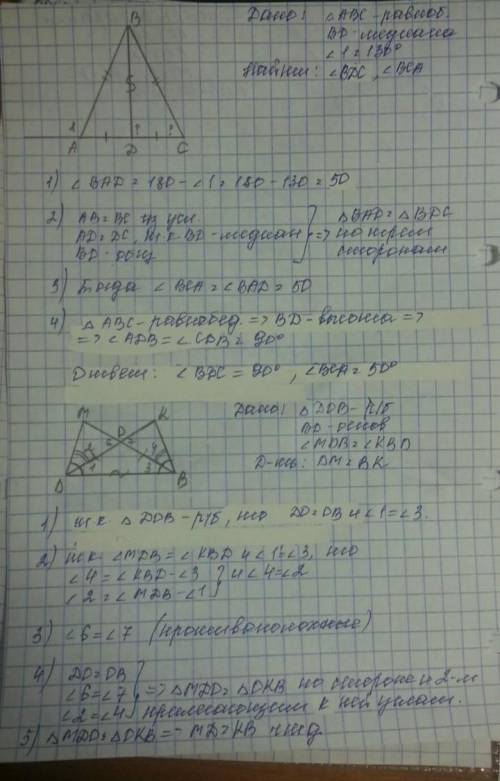 B
Дано: △ABC-равноб.
BD-медиана
∠1=130°
Найти: ∠BDC, ∠BCA
1
A D C
? ?
1) ∠BAD=180-∠1=180-130=50
2) AB=BC из усл.
AD=DC, т.к BD-медиан
BD-общ
=> △BAD=△BDC
по трем
сторонам
3) Тогда ∠BCA=∠BAD=50
4) △ABC-равнобед.=>BD-высота=>
=>∠ADB=∠CDB=90°
Ответ: ∠BDC=90°, ∠BCA=50°
M K
O
2 1 4 3
D B
Дано: △DOB-р/б
BD-основ
∠MDB=∠KBD
Д-ть: DM=BK
1) т.к. △DOB-р/б, то DO=OB и ∠1=∠3.
2) т.к. ∠MDB=∠KBD и ∠1=∠3, то
∠4=∠KBD-∠3
∠2=∠MDB-∠1
} и ∠4=∠2
3) ∠6=∠7 (противоположные)
4) DO=OB
∠6=∠7
∠2=∠4
=>△MDO=△OKB по стороне и 2-м
прилегающим к ней углам.
5) △MDO=△OKB=>MD=KB чтд.